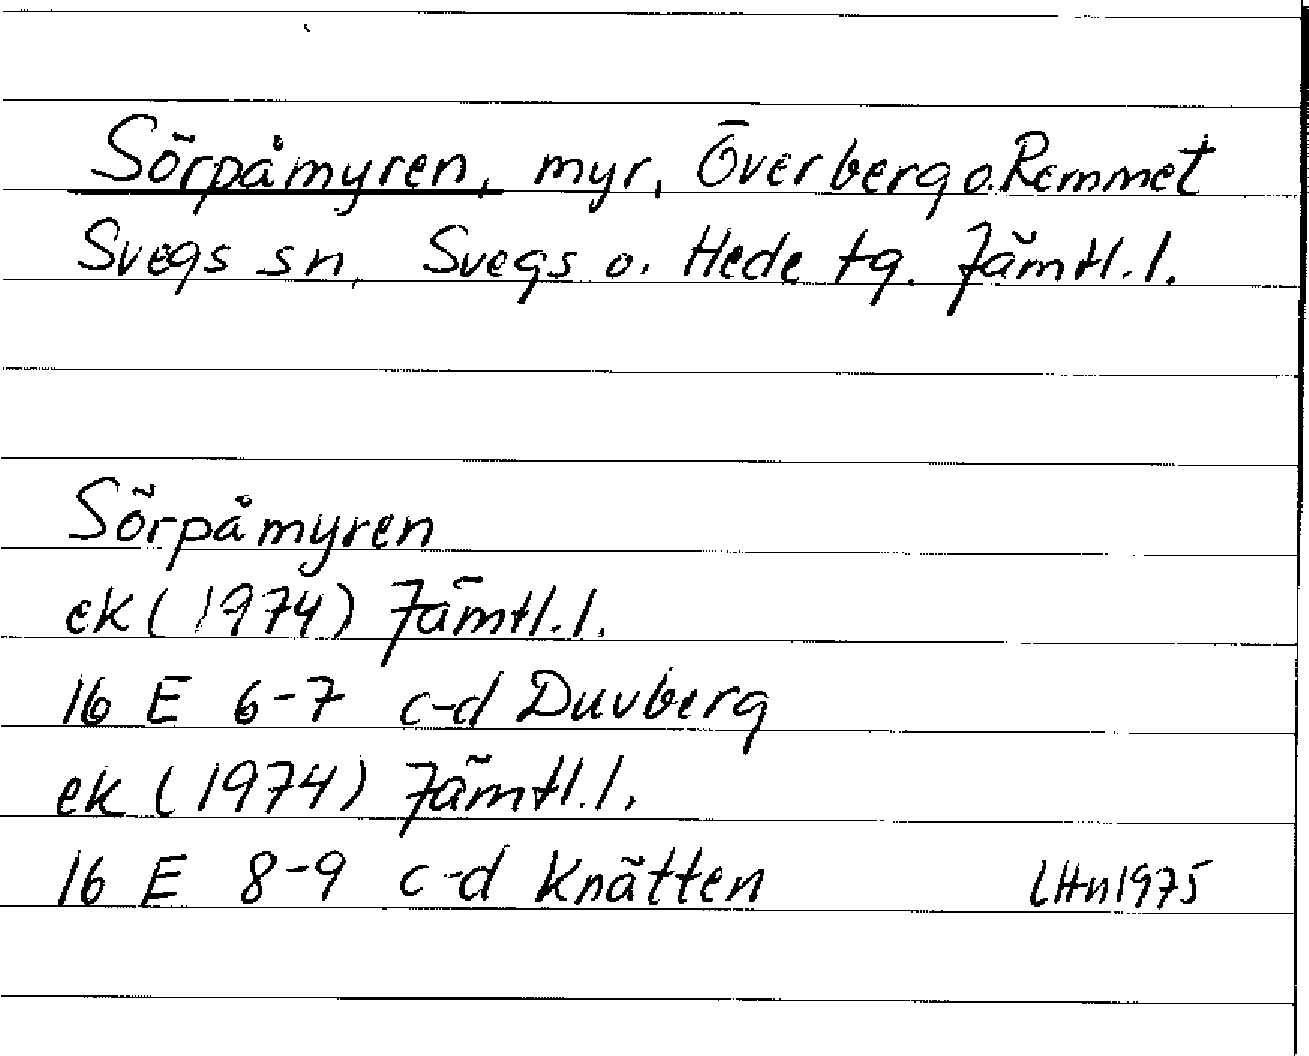 Sörpåmyren, myr, Överberg o. Remmet
Svegs sn, Svegs o. Hede tg. Jämtl. l.
Sörpåmyren
ek (1974) Jämtl. l.
16 E 6-7 c-d Duvberg
ek (1974) Jämtl. l.
16 E 8-9 c-d Knätten LHn 1975